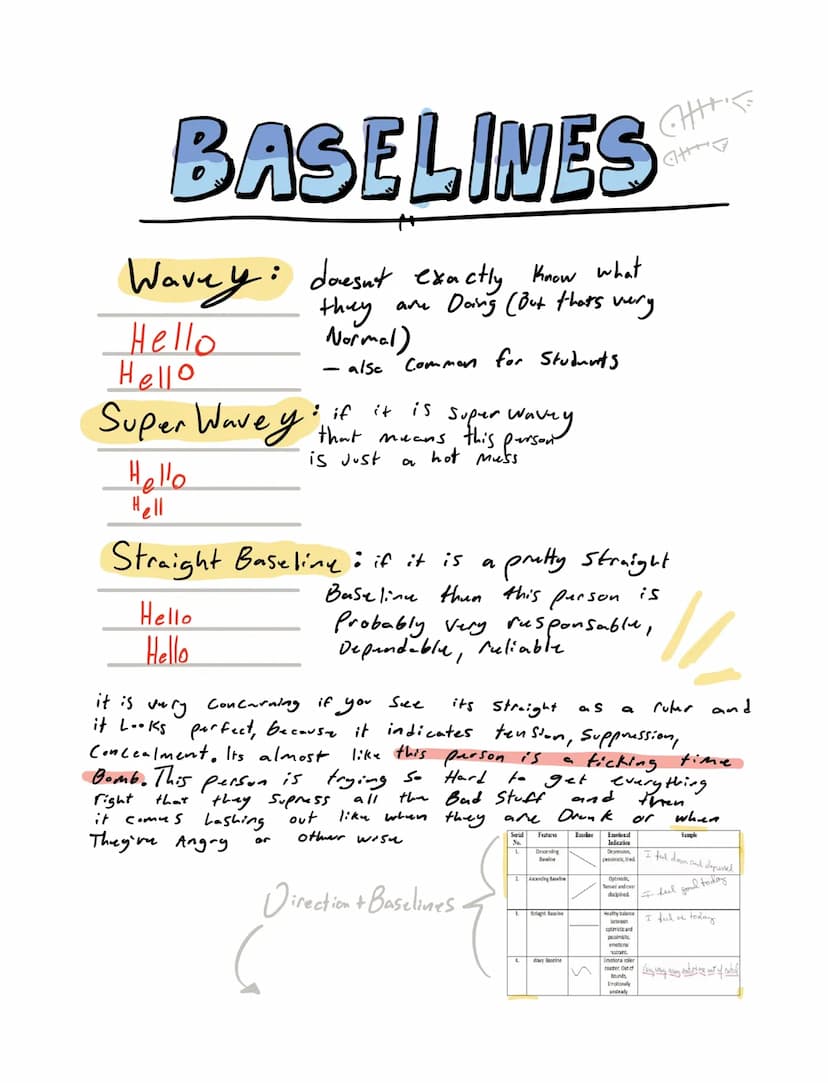 BASELINES
Wavey: doesnt exactly know what
they are Doing (But thats very
Normal)
Hello
— also Common for Students
Hello
Super Wavey: if it is super wavey
that means this person
is Just a hot mess
Hello
Hell
Straight Baseline: if it is a pretty straight
Baseline then this person is
Hello
Probably very responsable,
Hello
Dependable, reliable
it is very concerning if you see its straight as a ruler and
it Looks perfect, because it indicates tension, suppression,
Concealment. Its almost like this person is a ticking time
Bomb. This person is trying so Hard to get everything
right that they supress all the Bad Stuff and then
it comes Lashing out like when they are Drunk or when
They're Angry or other wise
Direction + Baselines
Serial No. Features Baseline Emotional Indication Sample
1. Descending Baseline Depression, pessimistic, tired. I feel down and depressed
2. Ascending Baseline Optimistic, Tensed and over disciplined. I feel good today
3. Straight Baseline Healthy balance between optimistic and pessimistic, emotional restraint. I feel ok today
4. Wavy Baseline Emotional roller coaster, Out of Bounds, Emotionally unsteady